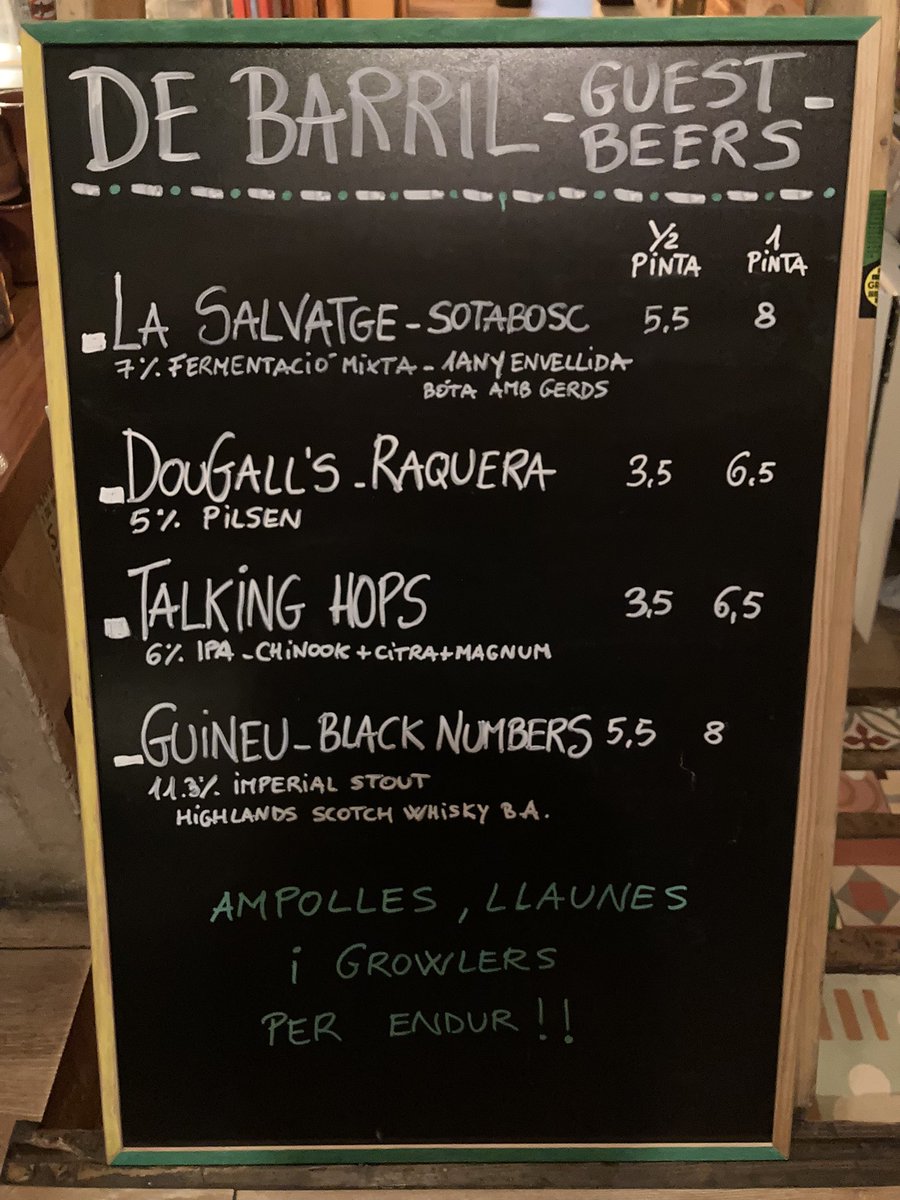 DE BARRIL - GUEST BEERS -
1/2 PINTA 1 PINTA
LA SALVATGE - SOTABOSC 5,5 8
7% FERMENTACIÓ MIXTA - 1 ANY ENVELLIDA
BÓTA AMB GERDS
DOUGALL'S - RAQUERA 3,5 6,5
5% PILSEN
TALKING HOPS 3,5 6,5
6% IPA - CHINOOK + CITRA + MAGNUM
GUINEU - BLACK NUMBERS 5,5 8
11.3% IMPERIAL STOUT
HIGHLANDS SCOTCH WHISKY B.A.
AMPOLLES, LLAUNES
i GROWLERS
PER ENDUR!!